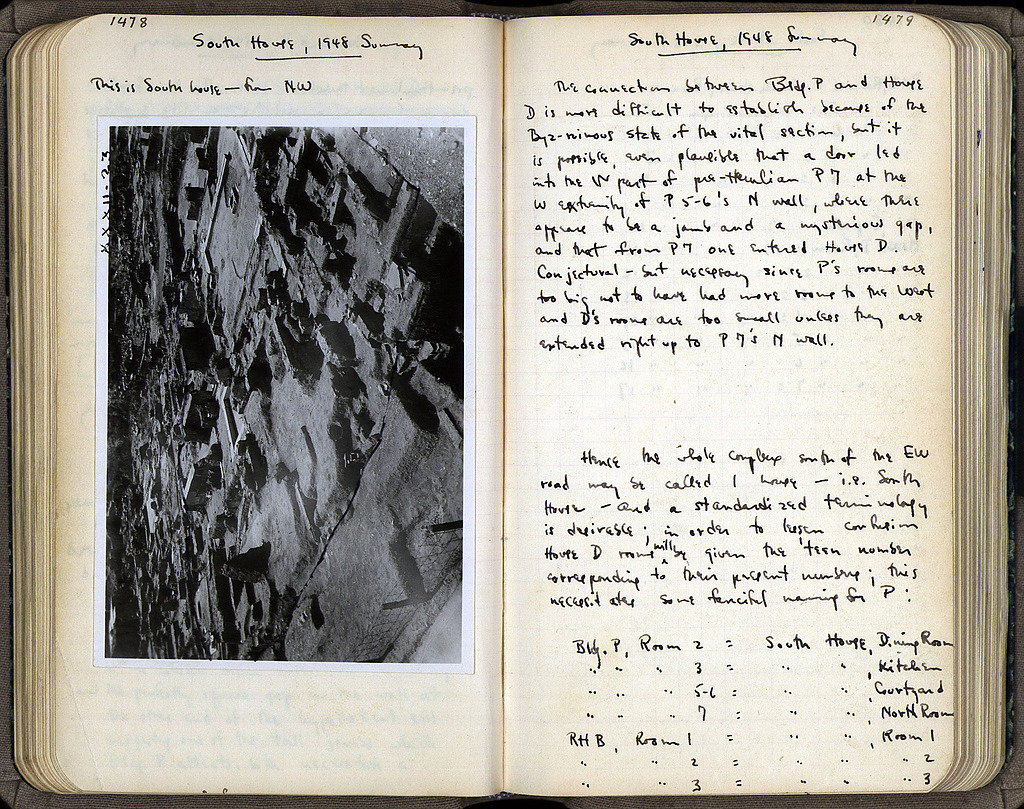 1478
South House, 1948 Summary
This is South house — from NW
XXXII-23
1479
South House, 1948 Summary
The connection between Bldg. P and House
D is more difficult to establish because of the
Byz-ruinous state of the vital section, but it
is possible, even plausible that a door led
into the W part of pre-Herulian P 7 at the
W extremity of P 5-6's N wall, where there
appears to be a jamb and a mysterious gap,
and that from P7 one entered House D.
Conjectural - but necessary since P's rooms are
too big not to have had more rooms to the West
and D's rooms are too small unless they are
extended right up to P 7's N wall.
Hence the whole complex south of the EW
road may be called 1 house — i.e. South
House - and a standardized terminology
is desirable; in order to lessen confusion
House D rooms will be given the 'teen number
corresponding to their present numbers; this
necessitates some fanciful naming for P:
Bldg. P, Room 2 = South House, Dining Room
" " " 3 = " " , Kitchen
" " " 5-6 = " " , Courtyard
" " " 7 = " " , North Room
RHB, Room 1 = " " , Room 1
" " 2 = " " " 2
" " 3 = " " " 3